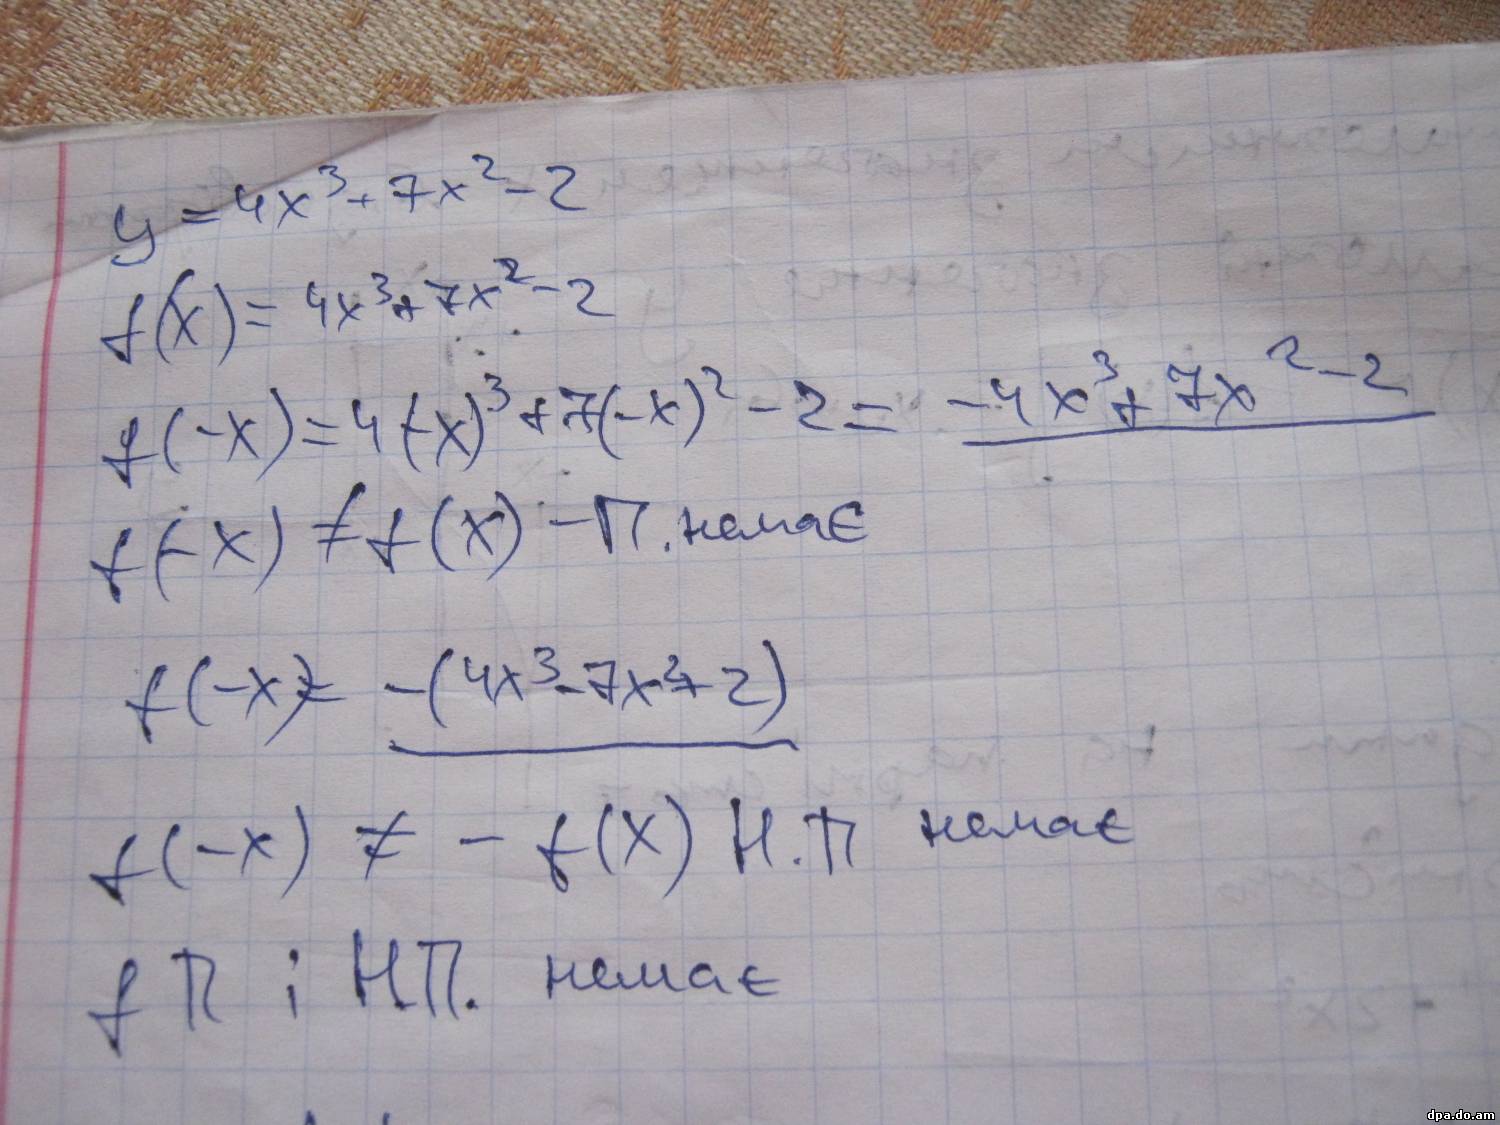 y = 4x³ + 7x² - 2
f(x) = 4x³ + 7x² - 2
f(-x) = 4(-x)³ + 7(-x)² - 2 = -4x³ + 7x² - 2
f(-x) ≠ f(x) - П. немає
f(-x) = -(4x³ - 7x² + 2)
f(-x) ≠ - f(x) Н.П немає
f П і Н.П. немає
dpa.do.am